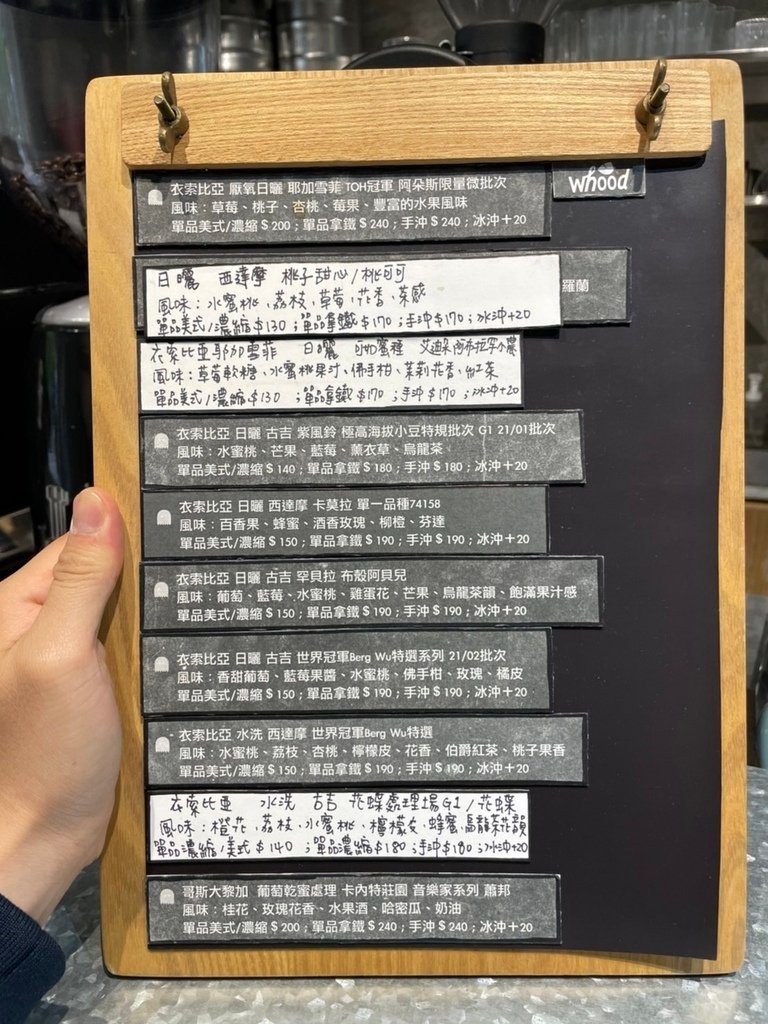 衣索比亞 厭氧日曬 耶加雪菲 TOH冠軍 阿朵斯限量微批次
whood
風味：草莓、桃子、杏桃、莓果、豐富的水果風味
單品美式/濃縮＄200；單品拿鐵＄240；手沖＄240；冰沖＋20
日曬 西達摩 桃子甜心/桃可可
羅蘭
風味：水蜜桃、荔枝、草莓、花香、茶感
單品美式/濃縮$130；單品拿鐵$170；手沖$170；冰沖+20
衣索比亞耶加雪菲 日曬 可如蜜種
風味：草莓軟糖、水蜜桃果汁、佛手柑、茉莉花香、紅茶
單品美式/濃縮$130；單品拿鐵$170；手沖$170；冰沖+20
衣索比亞 日曬 古吉 紫風鈴 極高海拔小豆特規批次 G1 21/01批次
風味：水蜜桃、芒果、藍莓、薰衣草、烏龍茶
單品美式/濃縮＄140；單品拿鐵＄180；手沖＄180；冰沖＋20
衣索比亞 日曬 西達摩 卡莫拉 單一品種74158
風味：百香果、蜂蜜、酒香玫瑰、柳橙、芬達
單品美式/濃縮＄150；單品拿鐵＄190；手沖＄190；冰沖＋20
衣索比亞 日曬 古吉 罕貝拉 布穀阿貝兒
風味：葡萄、藍莓、水蜜桃、雞蛋花、芒果、烏龍茶韻、飽滿果汁感
單品美式/濃縮＄150；單品拿鐵＄190；手沖＄190；冰沖＋20
衣索比亞 日曬 古吉 世界冠軍Berg Wu特選系列 21/02批次
風味：香甜葡萄、藍莓果醬、水蜜桃、佛手柑、玫瑰、橘皮
單品美式/濃縮＄150；單品拿鐵＄190；手沖＄190；冰沖＋20
衣索比亞 水洗 西達摩 世界冠軍Berg Wu特選
風味：水蜜桃、荔枝、杏桃、檸檬皮、花香、伯爵紅茶、桃子果香
單品美式/濃縮＄150；單品拿鐵＄190；手沖＄190；冰沖＋20
衣索比亞 水洗 古吉 花蝶處理場G1/花蝶
風味：橙花、荔枝、水蜜桃、檸檬皮、蜂蜜、烏龍茶花韻
單品濃縮/美式$140；單品濃縮$180；手沖$180；冰沖+20
哥斯大黎加 葡萄乾蜜處理 卡內特莊園 音樂家系列 蕭邦
風味：桂花、玫瑰花香、水果酒、哈密瓜、奶油
單品美式/濃縮＄200；單品拿鐵＄240；手沖＄240；冰沖＋20